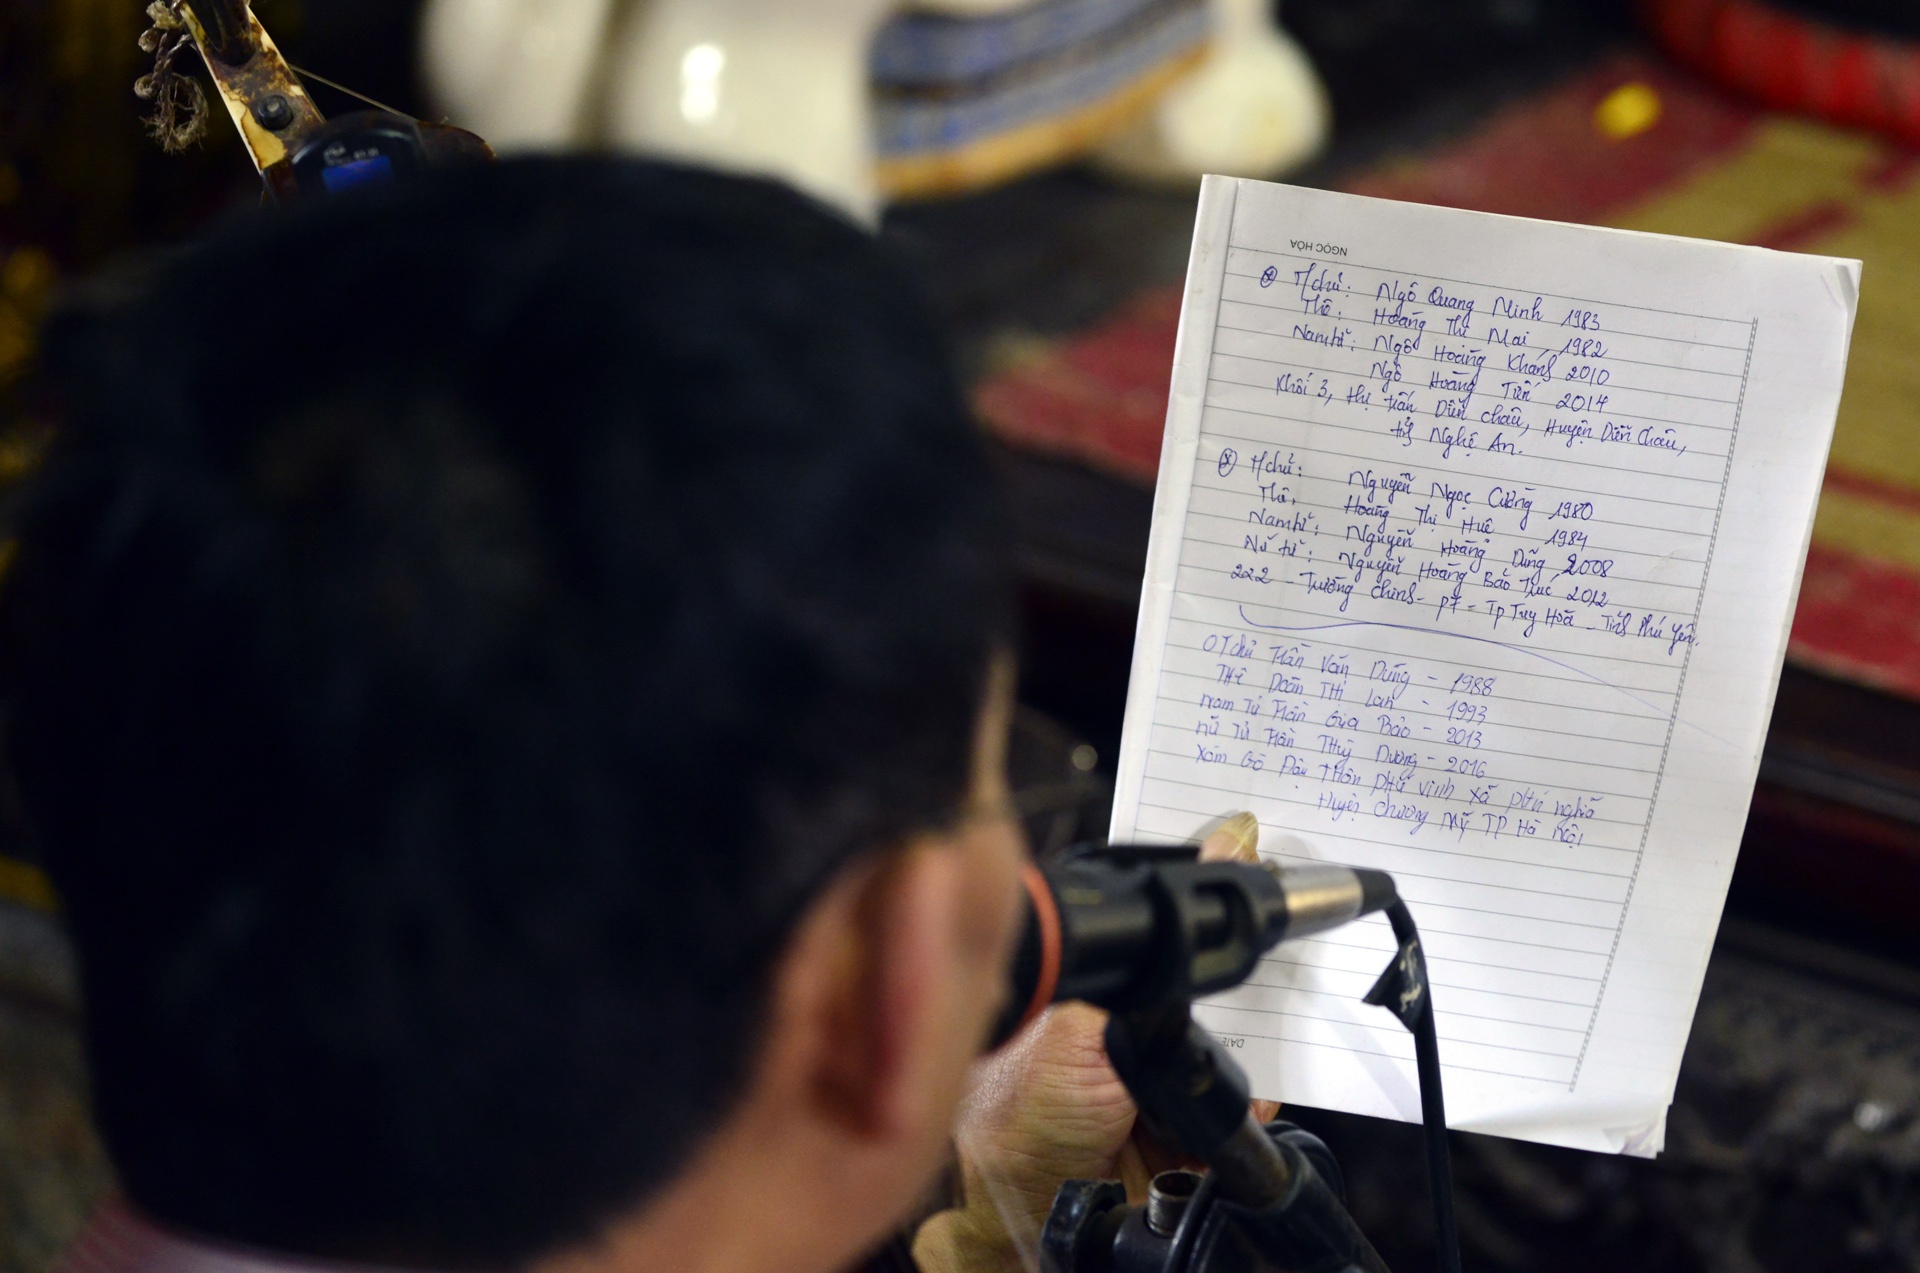 NGỌC HÒA
T/chủ: Ngô Quang Ninh 1983
Thê: Hoàng Thị Mai 1982
Nam tử: Ngô Hoàng Khánh 2010
Ngô Hoàng Tiến 2014
Khối 3, thị trấn Diễn Châu, Huyện Diễn Châu,
tỉnh Nghệ An.
T/chủ: Nguyễn Ngọc Cường 1980
Thê, Hoàng Thị Huê 1984
Nam tử: Nguyễn Hoàng Dũng 2008
Nữ tử: Nguyễn Hoàng Bảo Trúc 2012
222 - Trường Chinh - P7 - Tp Tuy Hoà - Tỉnh Phú Yên.
T chủ Trần Văn Dũng - 1988
Thê Doãn Thị Lan - 1993
Nam Tử Trần Gia Bảo - 2013
Nữ Tử Trần Thuỳ Dương - 2016
Xóm Gò Đậu Thôn Phú Vinh Xã Phú Nghĩa
Huyện Chương Mỹ TP Hà Nội
DATE